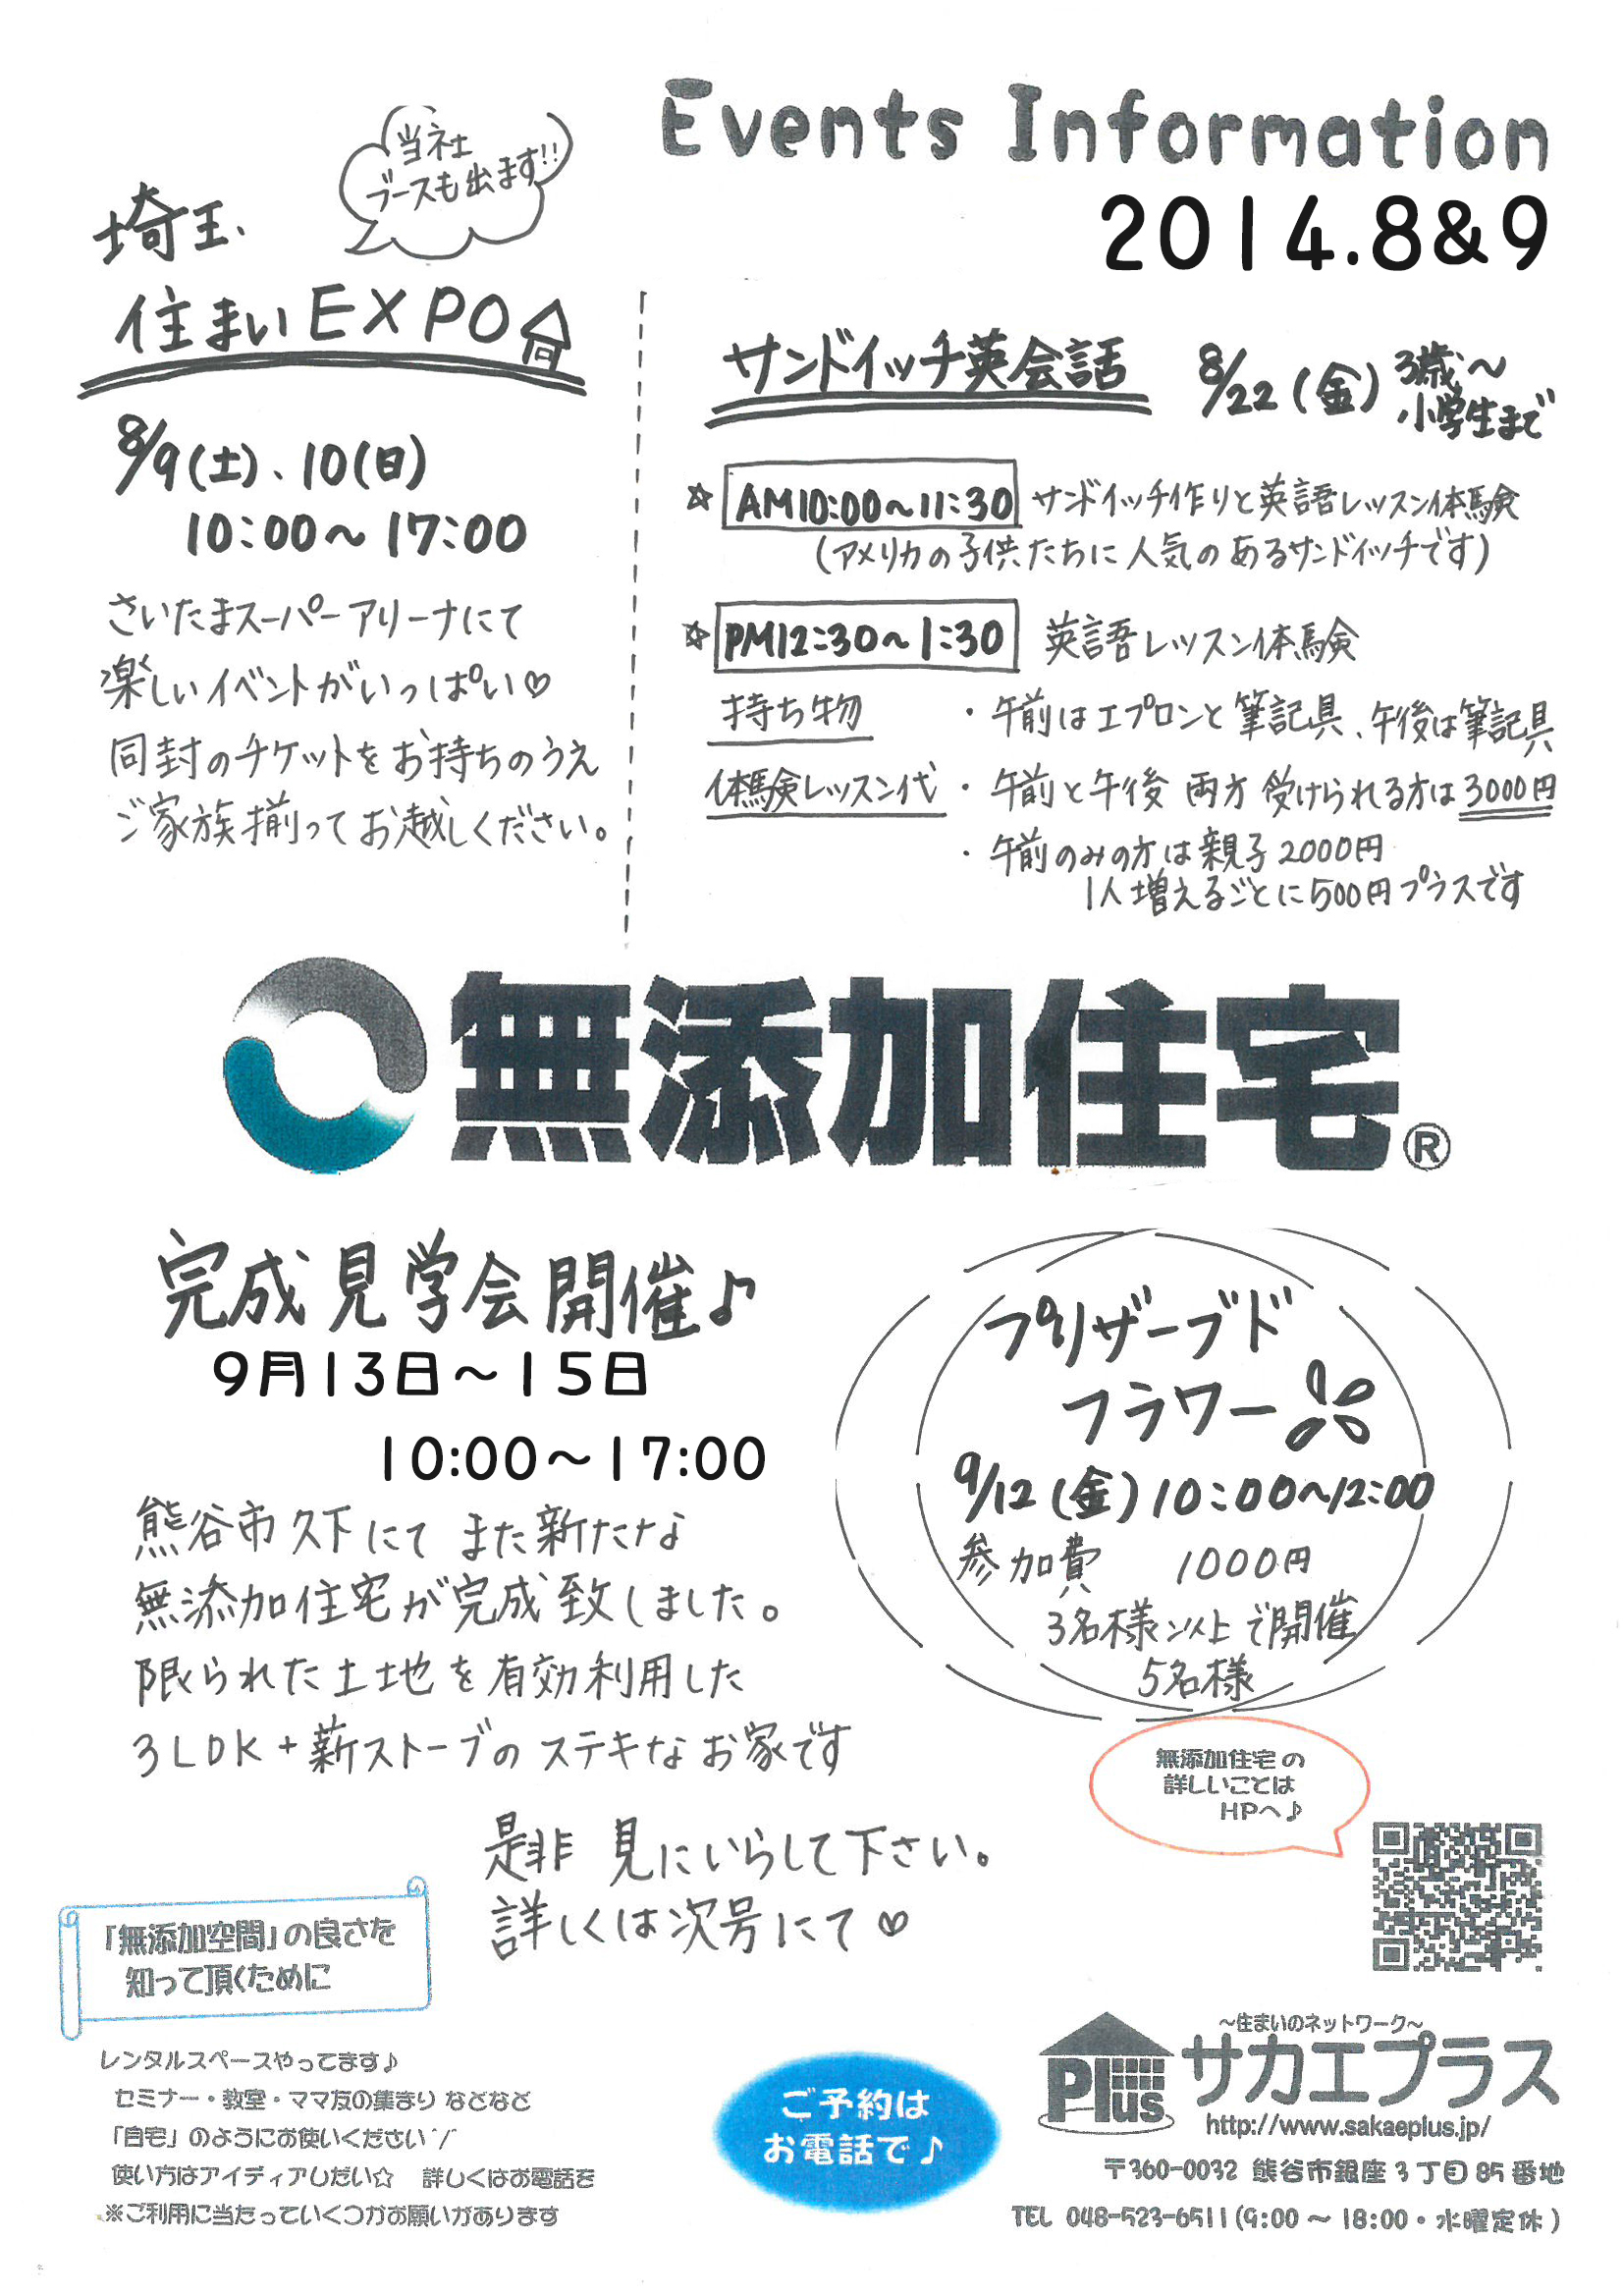 Events Information
2014.8&9
当社
ブースも出ます!!
埼玉
住まいEXPO
8/9(土)、10(日)
10:00～17:00
さいたまスーパーアリーナにて
楽しいイベントがいっぱい♡
同封のチケットをお持ちのうえ
ご家族揃ってお越しください。
サンドイッチ英会話 8/22(金) 3歳～
小学生まで
☆ AM10:00～11:30 サンドイッチ作りと英語レッスン体験
(アメリカの子供たちに人気のあるサンドイッチです)
☆ PM12:30～1:30 英語レッスン体験
持ち物 ・午前はエプロンと筆記具、午後は筆記具
体験レッスン代 ・午前と午後 両方 受けられる方は3000円
・午前のみの方は親子2000円
1人増えるごとに500円プラスです
無添加住宅®
完成見学会開催♪
9月13日～15日
10:00～17:00
熊谷市久下にて また新たな
無添加住宅が完成致しました。
限られた土地を有効利用した
3LDK+薪ストーブのステキなお家です
是非 見にいらして下さい。
詳しくは次号にて♡
プリザーブド
フラワー
9/12(金)10:00～12:00
参加費 1000円
3名様以上で開催
5名様
無添加住宅の
詳しいことは
HPへ♪
「無添加空間」の良さを
知って頂くために
レンタルスペースやってます♪
セミナー・教室・ママ友の集まり などなど
「自宅」のようにお使いください^/^
使い方はアイディアしだい☆ 詳しくはお電話を
※ご利用に当たっていくつかお願いがあります
ご予約は
お電話で♪
～住まいのネットワーク～
Plus サカエプラス
http://www.sakaeplus.jp/
〒360-0032 熊谷市銀座3丁目85番地
TEL 048-523-6511(9:00～18:00・水曜定休)